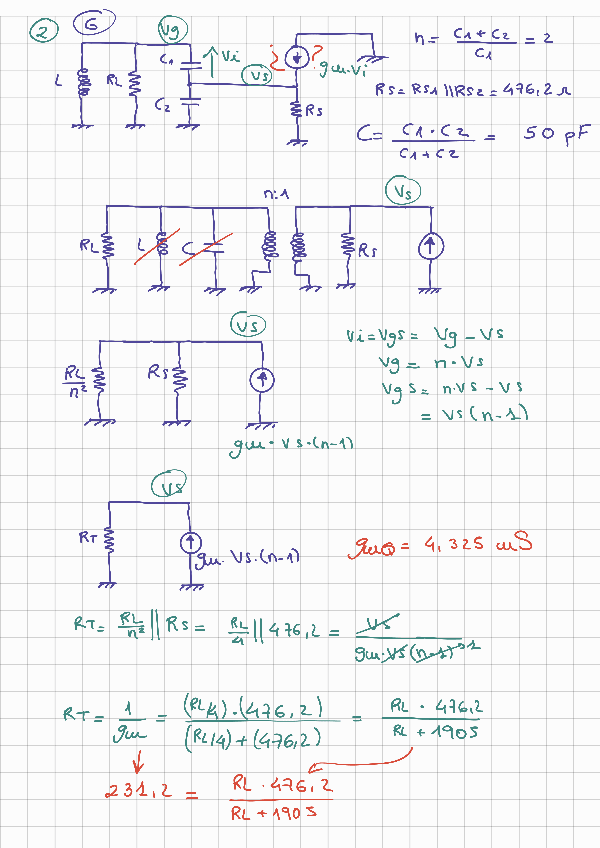 2 G Vg
C1 Vi ¿ ? gm·Vi
L RL Vs
C2 Rs
n = (C1 + C2)/C1 = 2
Rs = Rs1 || Rs2 = 476,2 Ω
C = (C1 · C2)/(C1 + C2) = 50 pF
n:1 Vs
RL L C Rs
Vs
RL/n² Rs
gm · Vs · (n-1)
Vi = Vgs = Vg - Vs
Vg = n · Vs
Vgs = n·Vs - Vs
= Vs (n-1)
Vs
RT gm · Vs · (n-1)
gmQ = 4,325 mS
RT = RL/n² || Rs = RL/4 || 476,2 = Vs/(gm·Vs(n-1)) 1
RT = 1/gm = ((RL/4)·(476,2))/((RL/4)+(476,2)) = (RL · 476,2)/(RL + 1905)
231,2 = (RL · 476,2)/(RL + 1905)